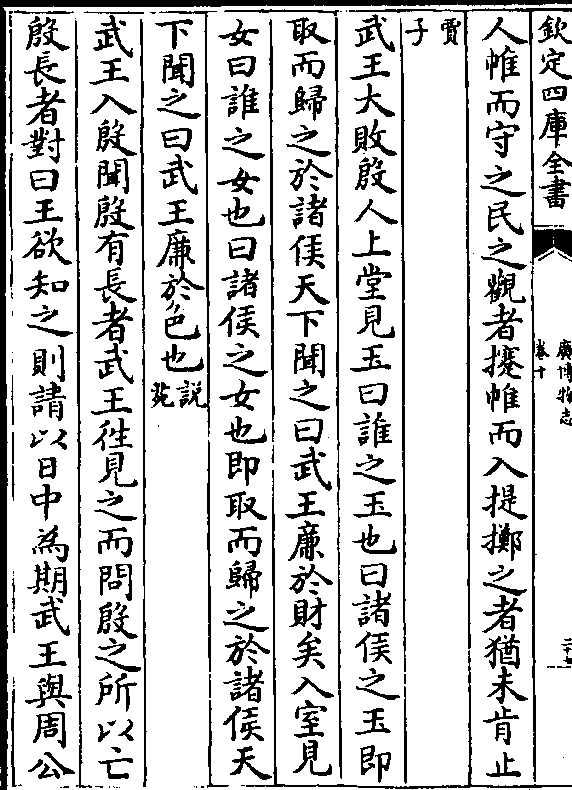 欽定四庫全書
廣博物志
卷十
人帷而守之民之觀者搴帷而入提擲之者猶未肯止
賈子
武王大敗殷人上堂見玉曰誰之玉也曰諸侯之玉即
取而歸之於諸侯天下聞之曰武王廉於財矣入室見
女曰誰之女也曰諸侯之女也即取而歸之於諸侯天
下聞之曰武王廉於色也説苑
武王入殷聞殷有長者武王徃見之而問殷之所以亡
殷長者對曰王欲知之則請以日中為期武王與周公